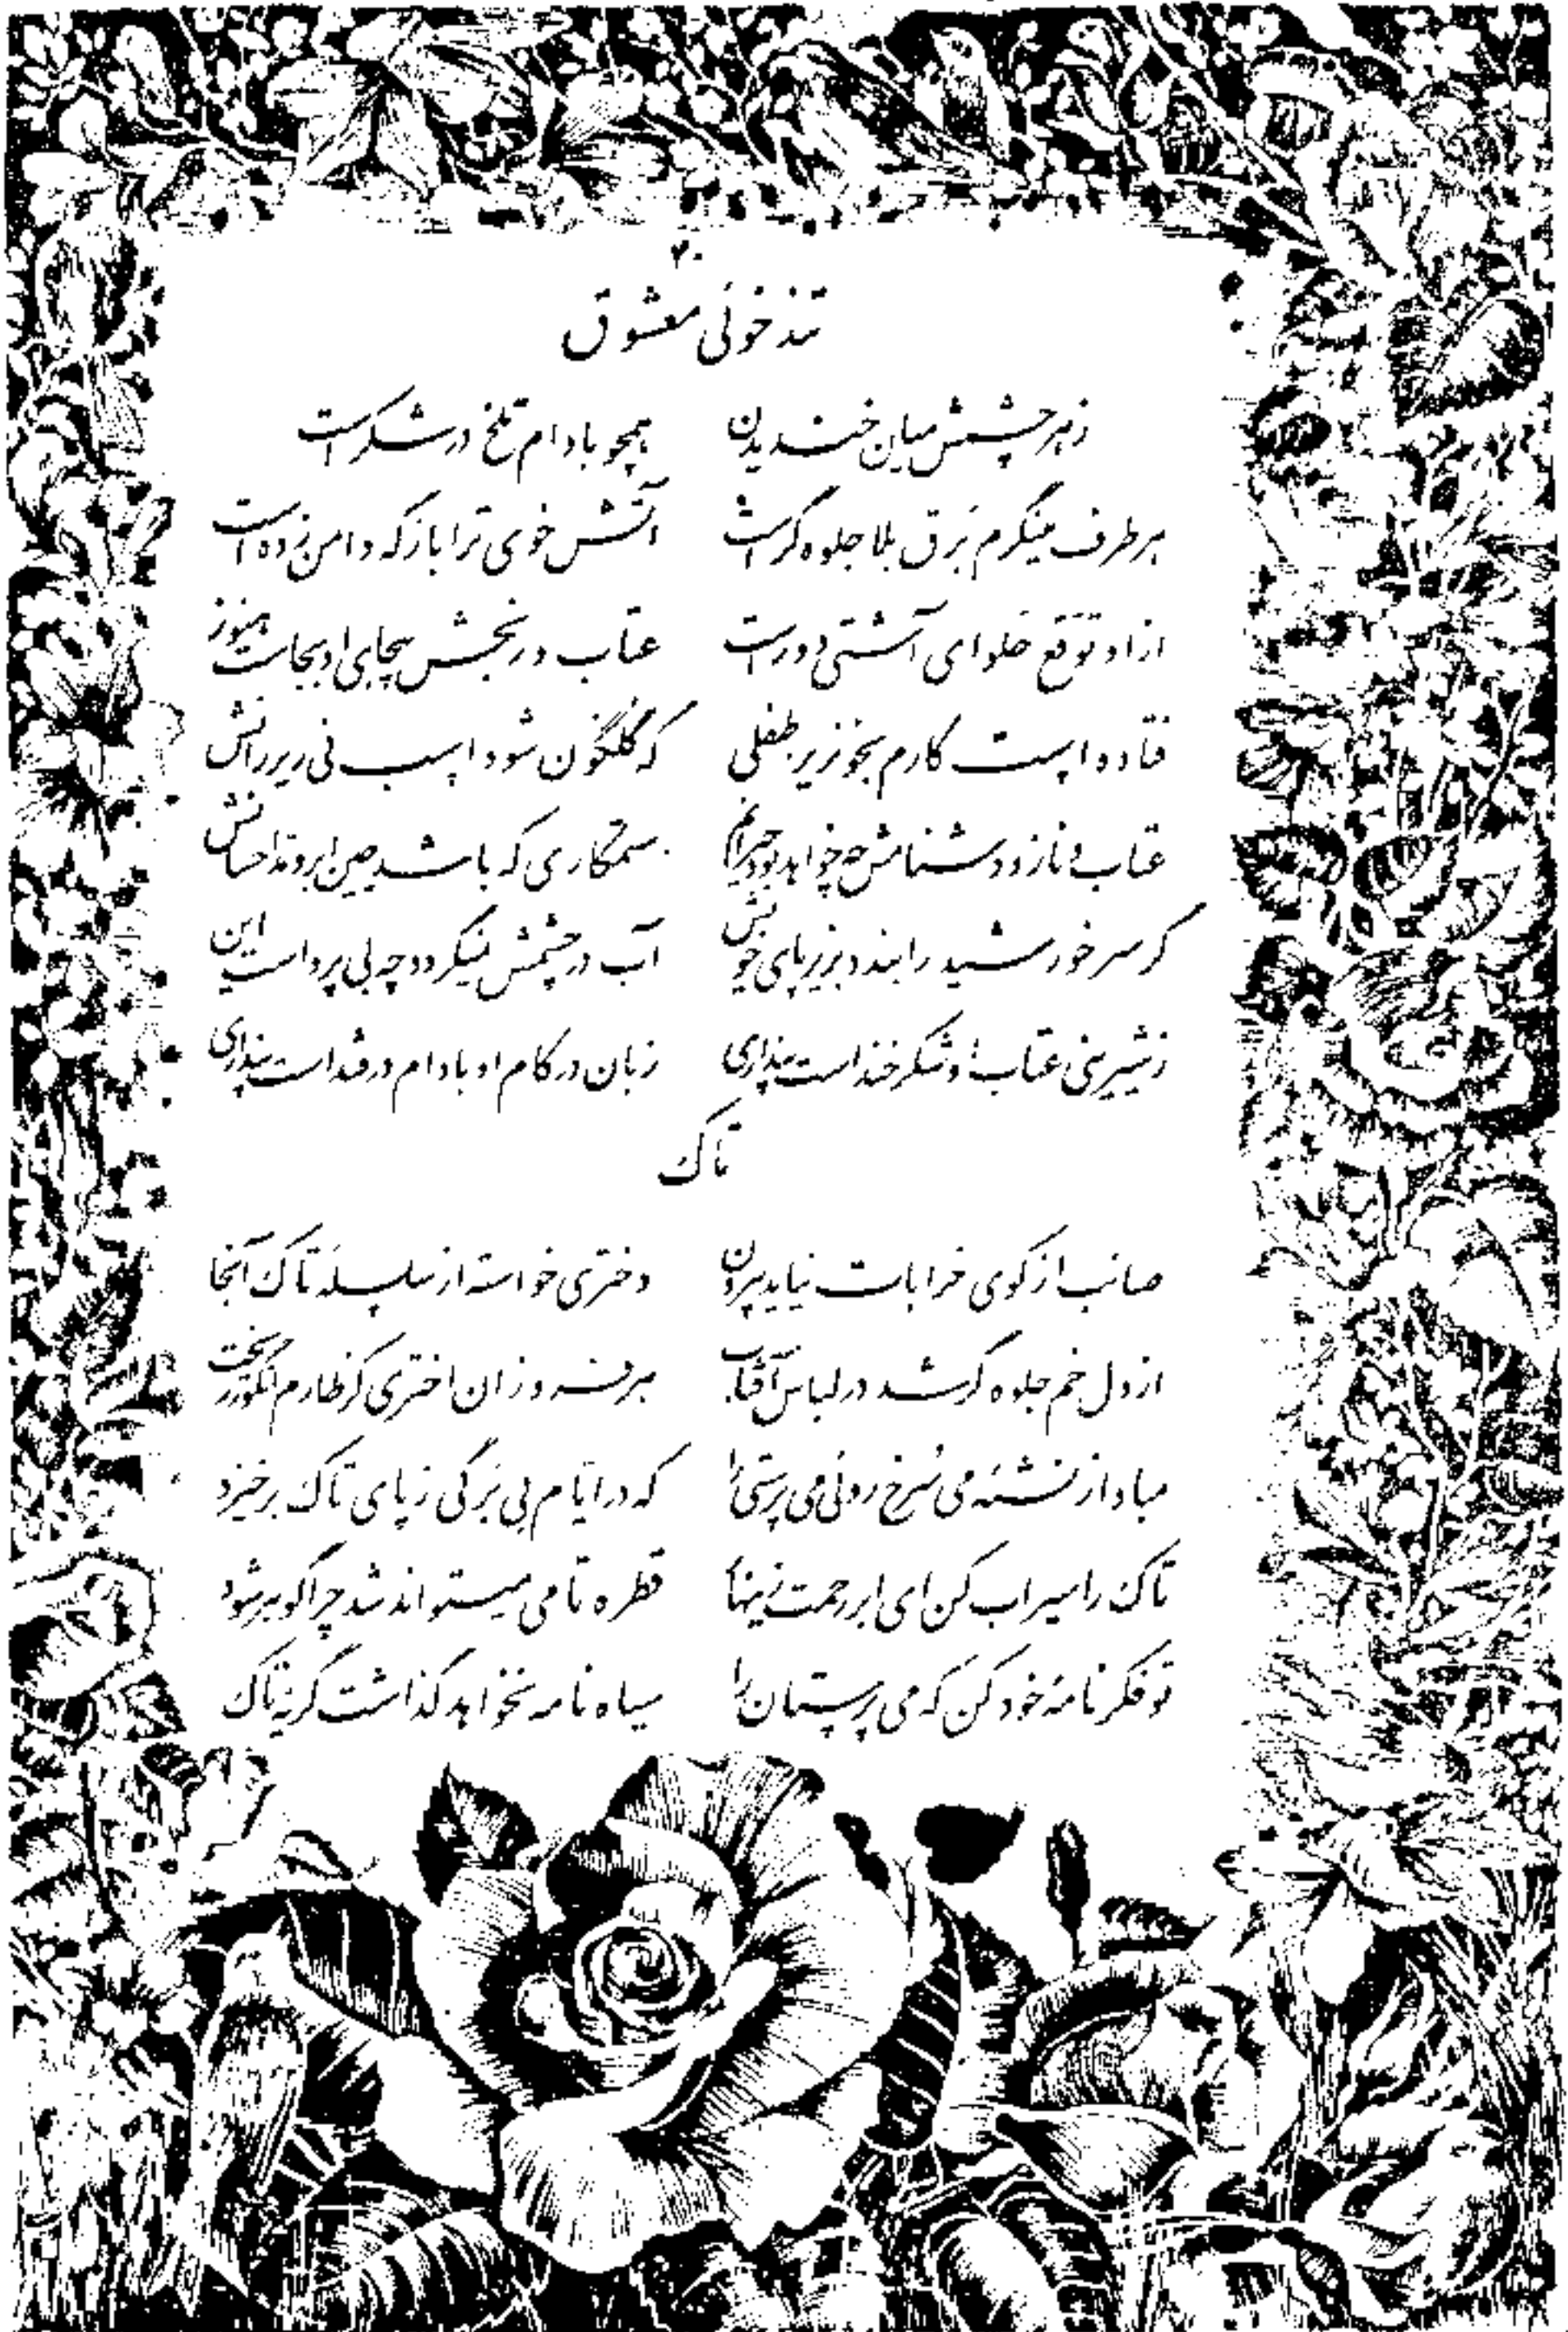 ۲۰
تندخوئی معشوق
زهر چشمش میان خندیدن همچو بادام تلخ در شکر است
هر طرف مینگرم برق بلا جلوه گر است آتش خوی ترا باز که دامن زده است
از او توقع حلوای آشتی دور است عتاب و رنجش بیجای او بجاست هنوز
فتاده است کارم بخونریز طفلی که گلگون شود اسب نی زیر رانش
عتاب و ناز و دشنامش چه خواهد بود حیرانم ستمکاری که باشد چین ابرو مد احسانش
گر سر خورشید را بندد بزیر پای خویش آب در چشمش نمیگردد چه بی پرواست این
ز شیرینی عتاب او شکرخند است پنداری زبان در کام او بادام در قند است پنداری
تاک
صائب از کوی خرابات نیاید بیرون دختری خواسته از سلسلهٔ تاک آنجا
از دل خم جلوه گر شد در لباس آفتاب هر فروزان اختری کز طارم انگور ریخت
مباد از نشئه می سرخ روئی می پرستی را که در ایام بی برگی ز پای تاک برخیزد
تاک را سیراب کن ای ابر رحمت زینهار قطره تا می میتواند شد چرا گوهر شود
تو فکر نامهٔ خود کن که می پرستان را سیاه نامه نخواهد گذاشت گریهٔ تاک